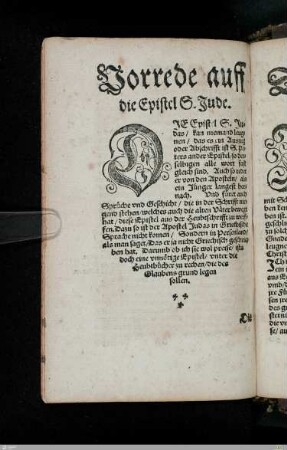 Vorrede auff
die Epistel S. Jude.
DIE Epistel S. Ju-
das / kan niemand leug-
nen / das es ein Auszug
oder Abschrifft ist S. Pe-
ters ander Epistel / so der-
selbigen alle wort fast
gleich sind. Auch so redet
er von den Aposteln / als
ein Jünger langest her-
nach. Vnd füret auch
Sprüche vnd Geschicht / die in der Schrifft nir-
gend stehen / welches auch die alten Väter bewegt
hat / diese Epistel aus der Heubtschrifft zu werf-
fen. Dazu so ist der Apostel Judas in Griechische
Sprache nicht komen / Sondern in Persenland /
als man saget / das er ja nicht Griechisch geschrie-
ben hat. Darumb ob ich sie wol preise / ists
doch eine vnnötige Epistel / vnter die
Heubtbücher zu rechen / die des
Glaubens grund legen
sollen.
Die
mit S
Christ